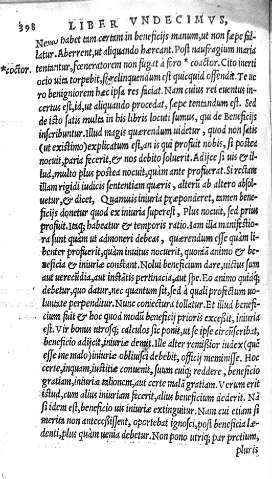 398 LIBER VNDECIMVS,
Nemo habet tam certam in beneficijs manum, ut non sæpe fal-
latur. Aberrent, ut aliquando hæreant. Post naufragium maria
*coctor. tentantur, fœneratorem non fugat à foro * coctor. Cito inerti
ocio uita torpebit, si relinquendum est quicquid offendit. Te ue
ro benigniorem hæc ipsa res faciat. Nam cuius rei euentus in-
certus est, id, ut aliquando procedat, sæpe tentandum est. Sed
de isto satis multa in his libris locuti sumus, qui de Beneficijs
inscribuntur. Illud magis quærendum uidetur, quod non satis
(ut existimo) explicatum est, an is qui profuit nobis, si postea
nocuit, paria fecerit, & nos debito soluerit. Adijce si uis & il-
lud, multo plus postea nocuit, quàm ante profuerat. Si rectam
illam rigidi iudicis sententiam quæris, alterū ab altero absol-
uet, & dicet, Quamuis iniuriæ præponderent, tamen bene-
ficijs donetur quod ex iniuria superest, Plus nocuit, sed prius
profuit. Itaq; habeatur & temporis ratio. Iam illa manifestio
ra sunt quàm ut admoneri debeas, quærendum esse quàm li-
benter profuerit, quàm inuitus nocuerit, quoniā animo & be-
neficia & iniuriæ constant. Nolui beneficium dare, uictus sum
aut uerecundia, aut instātis pertinacia, aut spe. Eo animo quidq;
debetur, quo datur, nec quantum sit, sed à quali profectum uo-
luntate perpenditur. Nunc coniectura tollatur. Et illud benefi-
cium fuit & hoc quod modū beneficij prioris excessit, iniuria
est. Vir bonus utrosq; calculos sic ponit, ut se ipse circūscribat,
beneficio adijcit, iniuriæ demit. Ille alter remissior iudex (quē
esse me malo) iniuriæ obliuisci debebit, officij meminisse. Hoc
certe, inquam, iustitiæ conuenit, suum cuiq; reddere, beneficio
gratiam, iniuriæ talionem, aut certe malā gratiam. Verum erit
istud, cum alius iniuriam fecerit, alius beneficium dederit. Nā
si idem est, beneficio uis iniuriæ extinguitur. Nam cui etiam si
merita non antecessissent, oportebat ignosci, post beneficia læ-
denti, plus quàm uenia debetur. Non pono utriq; par pretium,
pluris